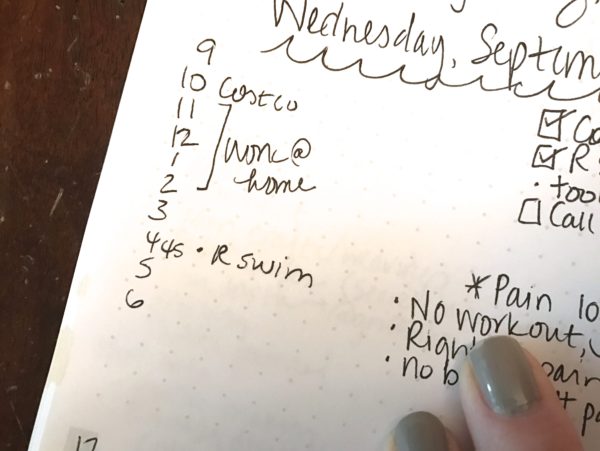 Wednesday, Septem
9
10 Costco
11
12 Work @
1 home
2
3
4 45 • R swim
5
6
☑ Co
☑ R s
• too
☐ Call
*Pain lo
• No workout,
• Right
• no b pain
17